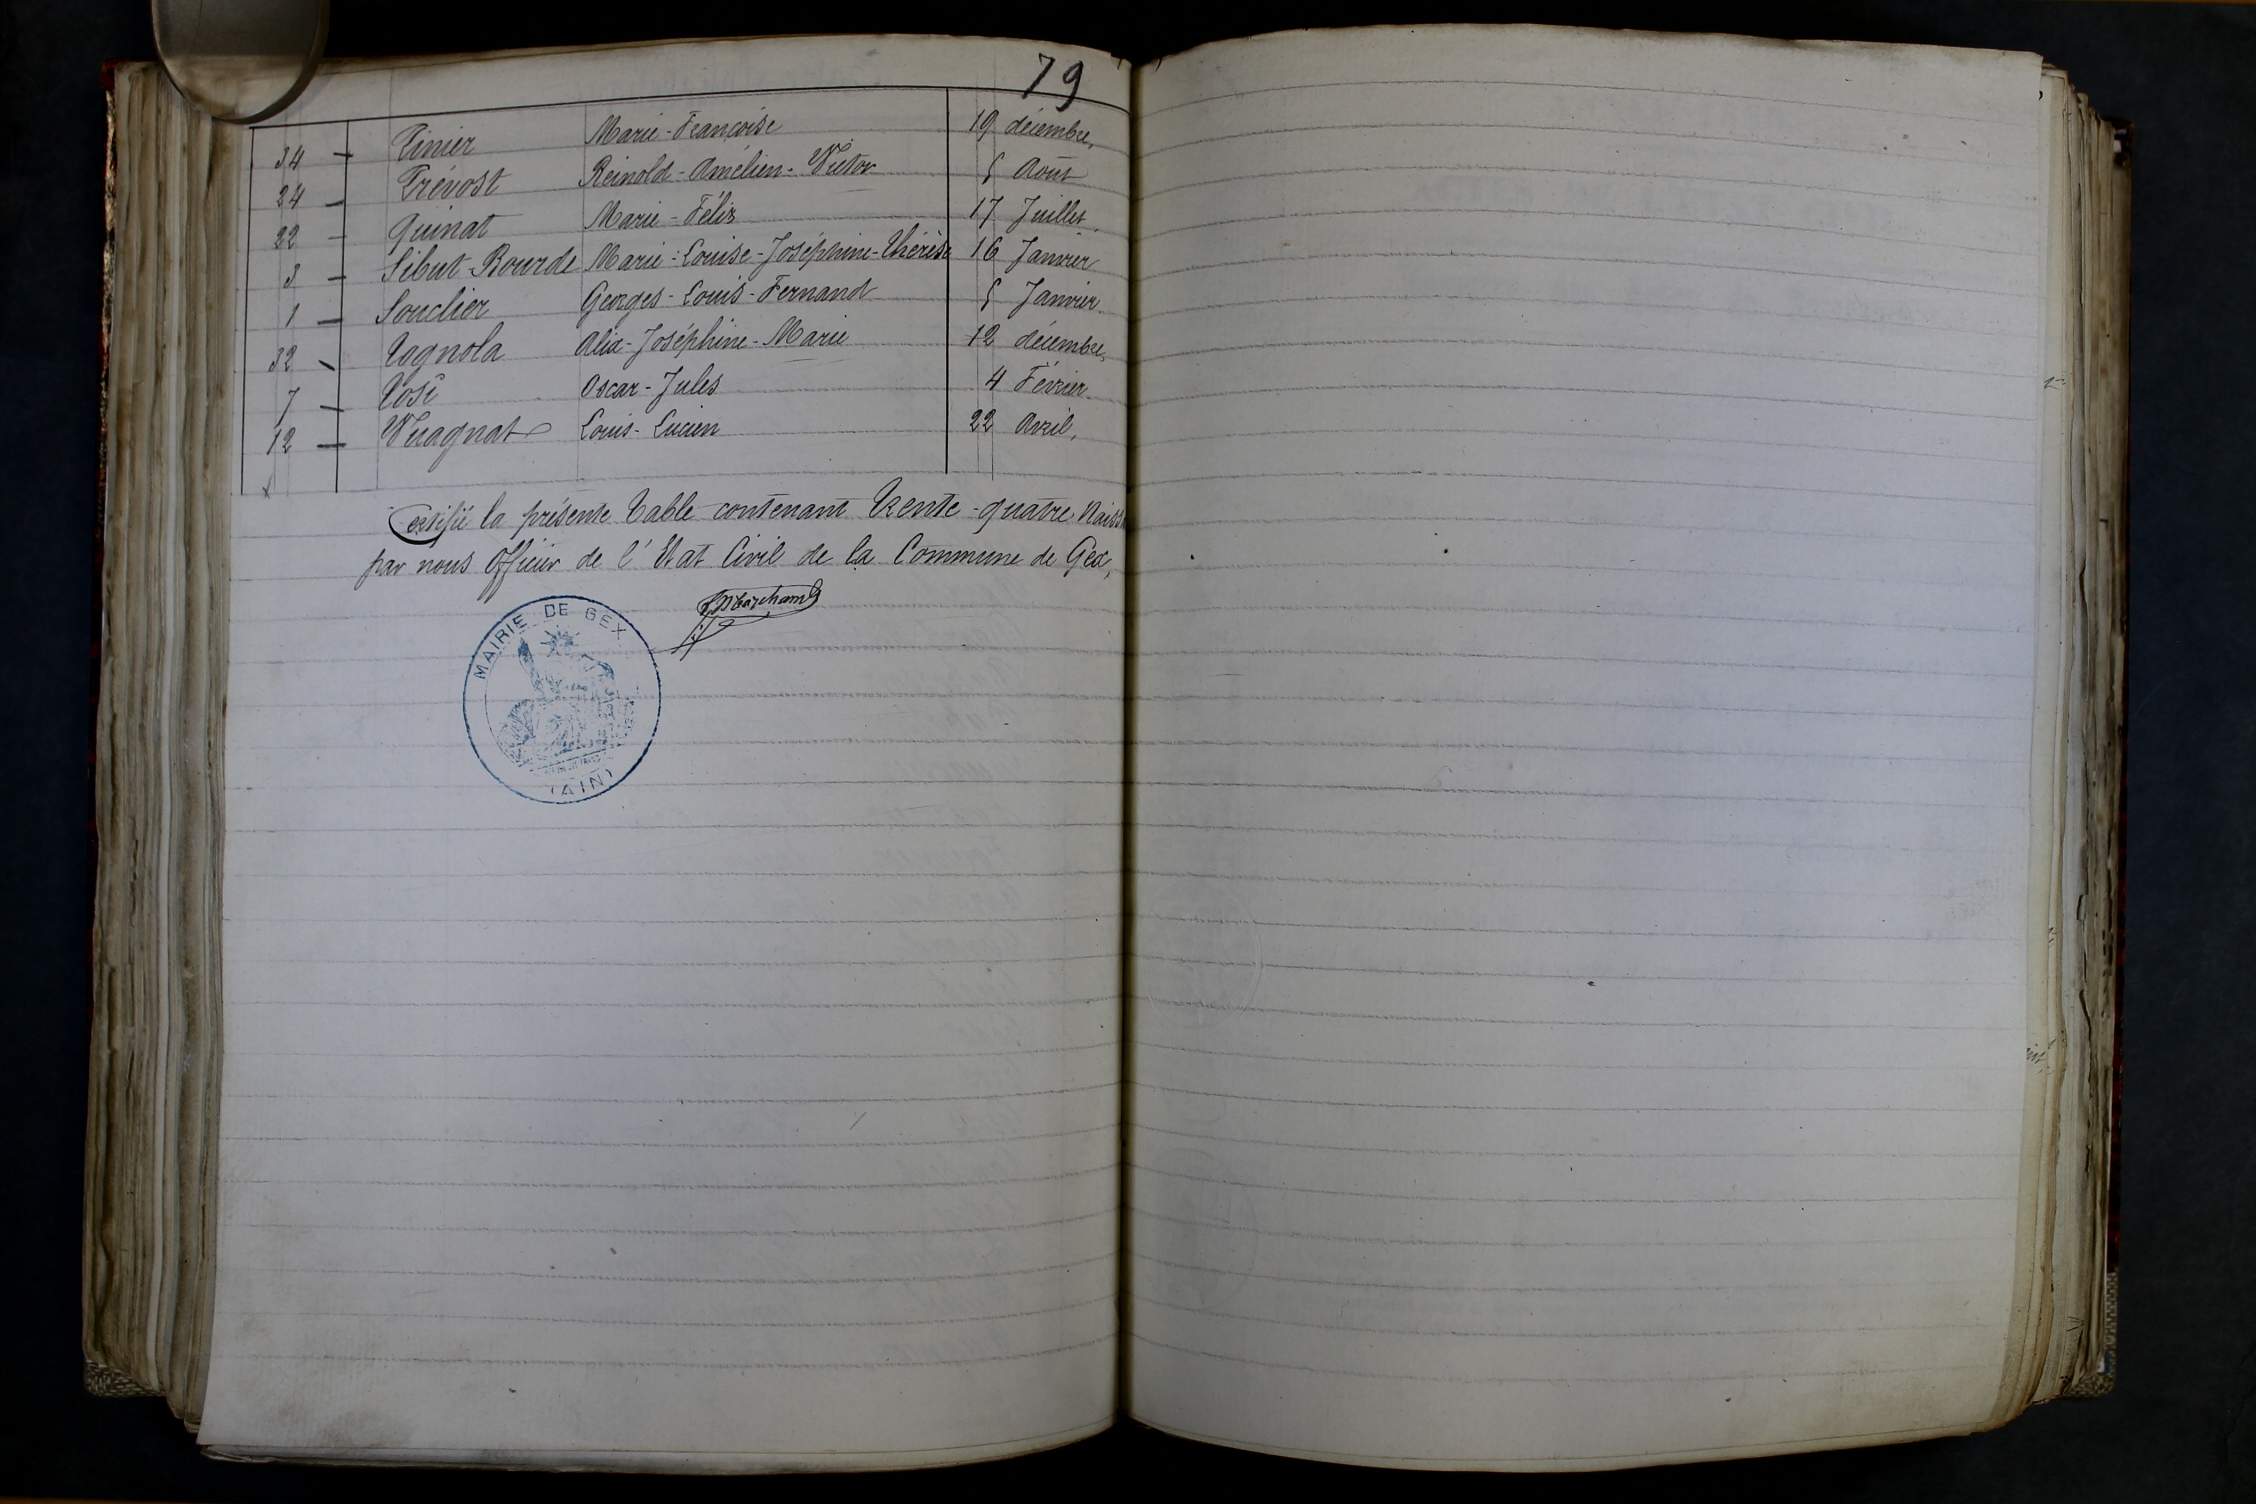 79
34 — Pinier Marie-Françoise 19 décembre,
24 — Prévost Reinold-Amélien-Victor 5 Août
22 — Quinat Marie-Félix 17 Juillet,
3 — Sibut-Bourde Marie-Louise-Joséphine-Thérèse 16 Janvier
1 — Souclier Georges-Louis-Fernand 5 Janvier
32 — Tagnola Alix-Joséphine-Marie 12 décembre,
7 — Tosé Oscar-Jules 4 Février
12 — Vuagnat Louis-Lucien 22 Avril,
Certifié la présente Table contenant Trente-quatre Naiss
par nous Officier de l'Etat Civil de la Commune de Gex,
Marchand
MAIRIE DE GEX
(AIN)